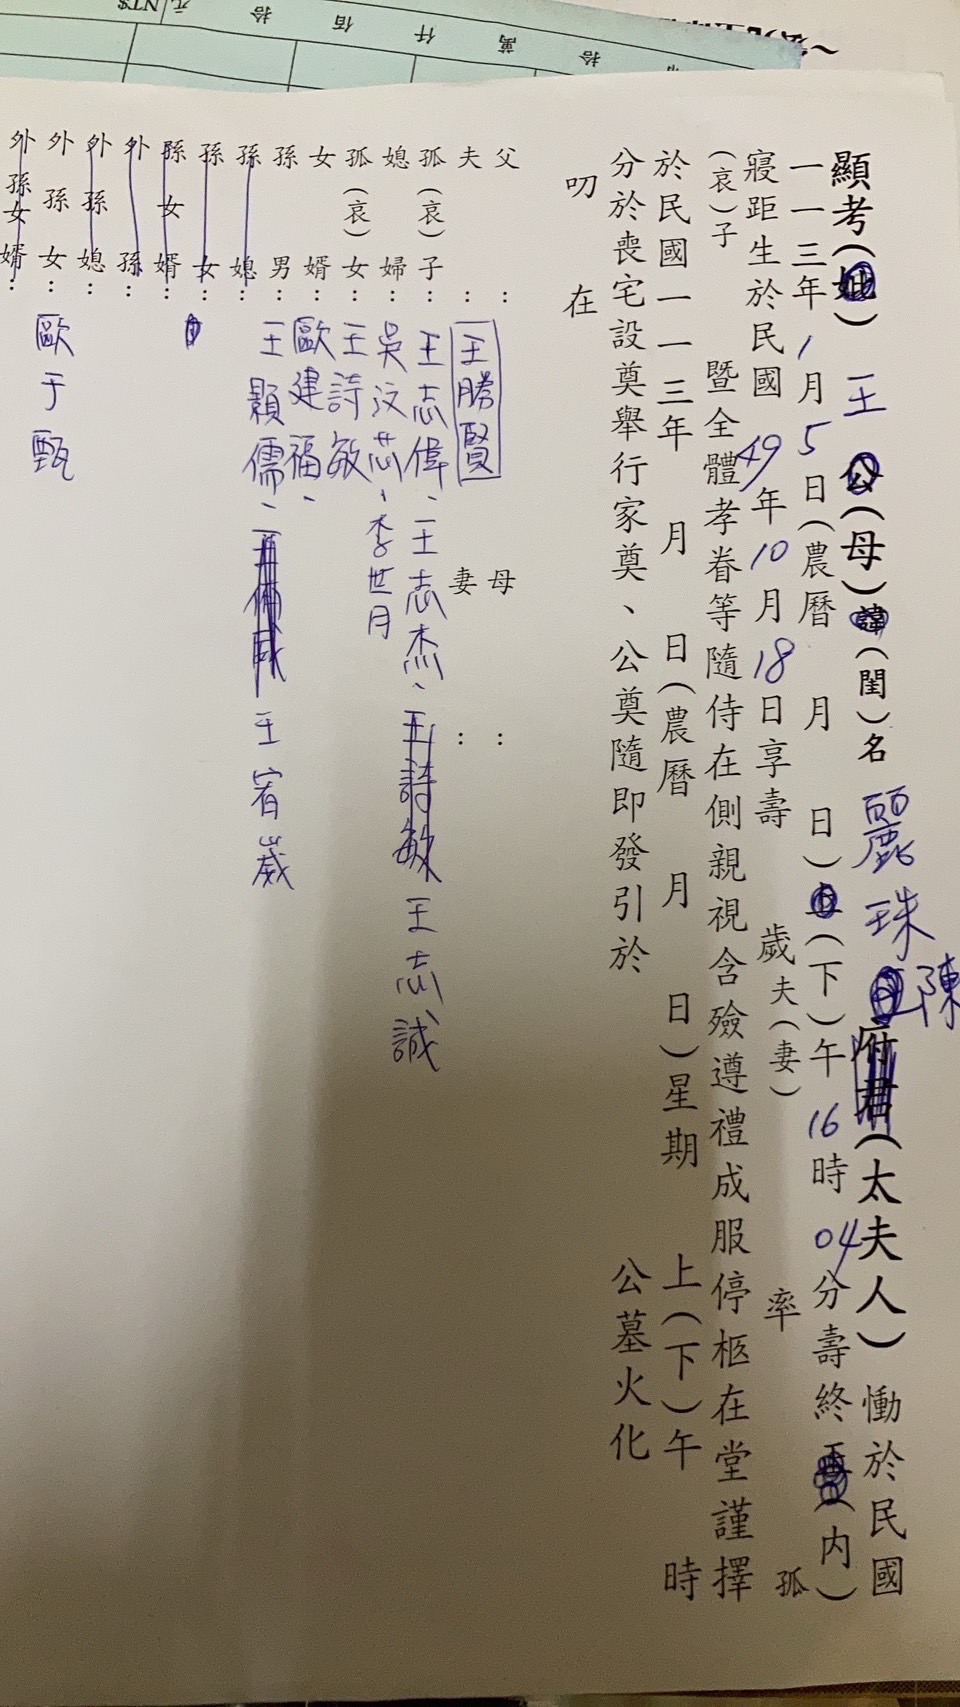 顯考(妣) 王 公(母)諱(閨)名 麗珠 陳 府君(太夫人) 慟於民國
一一三年 1 月 5 日(農曆 月 日)上(下)午 16 時 04 分壽終正(內)
寢距生於民國 49 年 10 月 18 日享壽 歲夫(妻) 率 孤
(哀)子 暨全體孝眷等隨侍在側親視含殮遵禮成服停柩在堂謹擇
於民國一一三年 月 日(農曆 月 日)星期 上(下)午 時
分於喪宅設奠舉行家奠、公奠隨即發引於 公墓火化
叨 在
父 : 母 :
夫 : 王勝賢 妻 :
孤(哀)子 : 王志偉、王志杰、王詩敏 王志誠
媳婦 : 吳汶芯、李世月
孤(哀)女 : 王詩敏
女婿 : 歐建福、
孫男 : 王顥儒、 王宥崴
孫媳 :
孫女 :
孫女婿 :
外孫 :
外孫媳 :
外孫女 : 歐于甄
外孫女婿 :
NT$ 元 拾 佰 仟 萬 拾